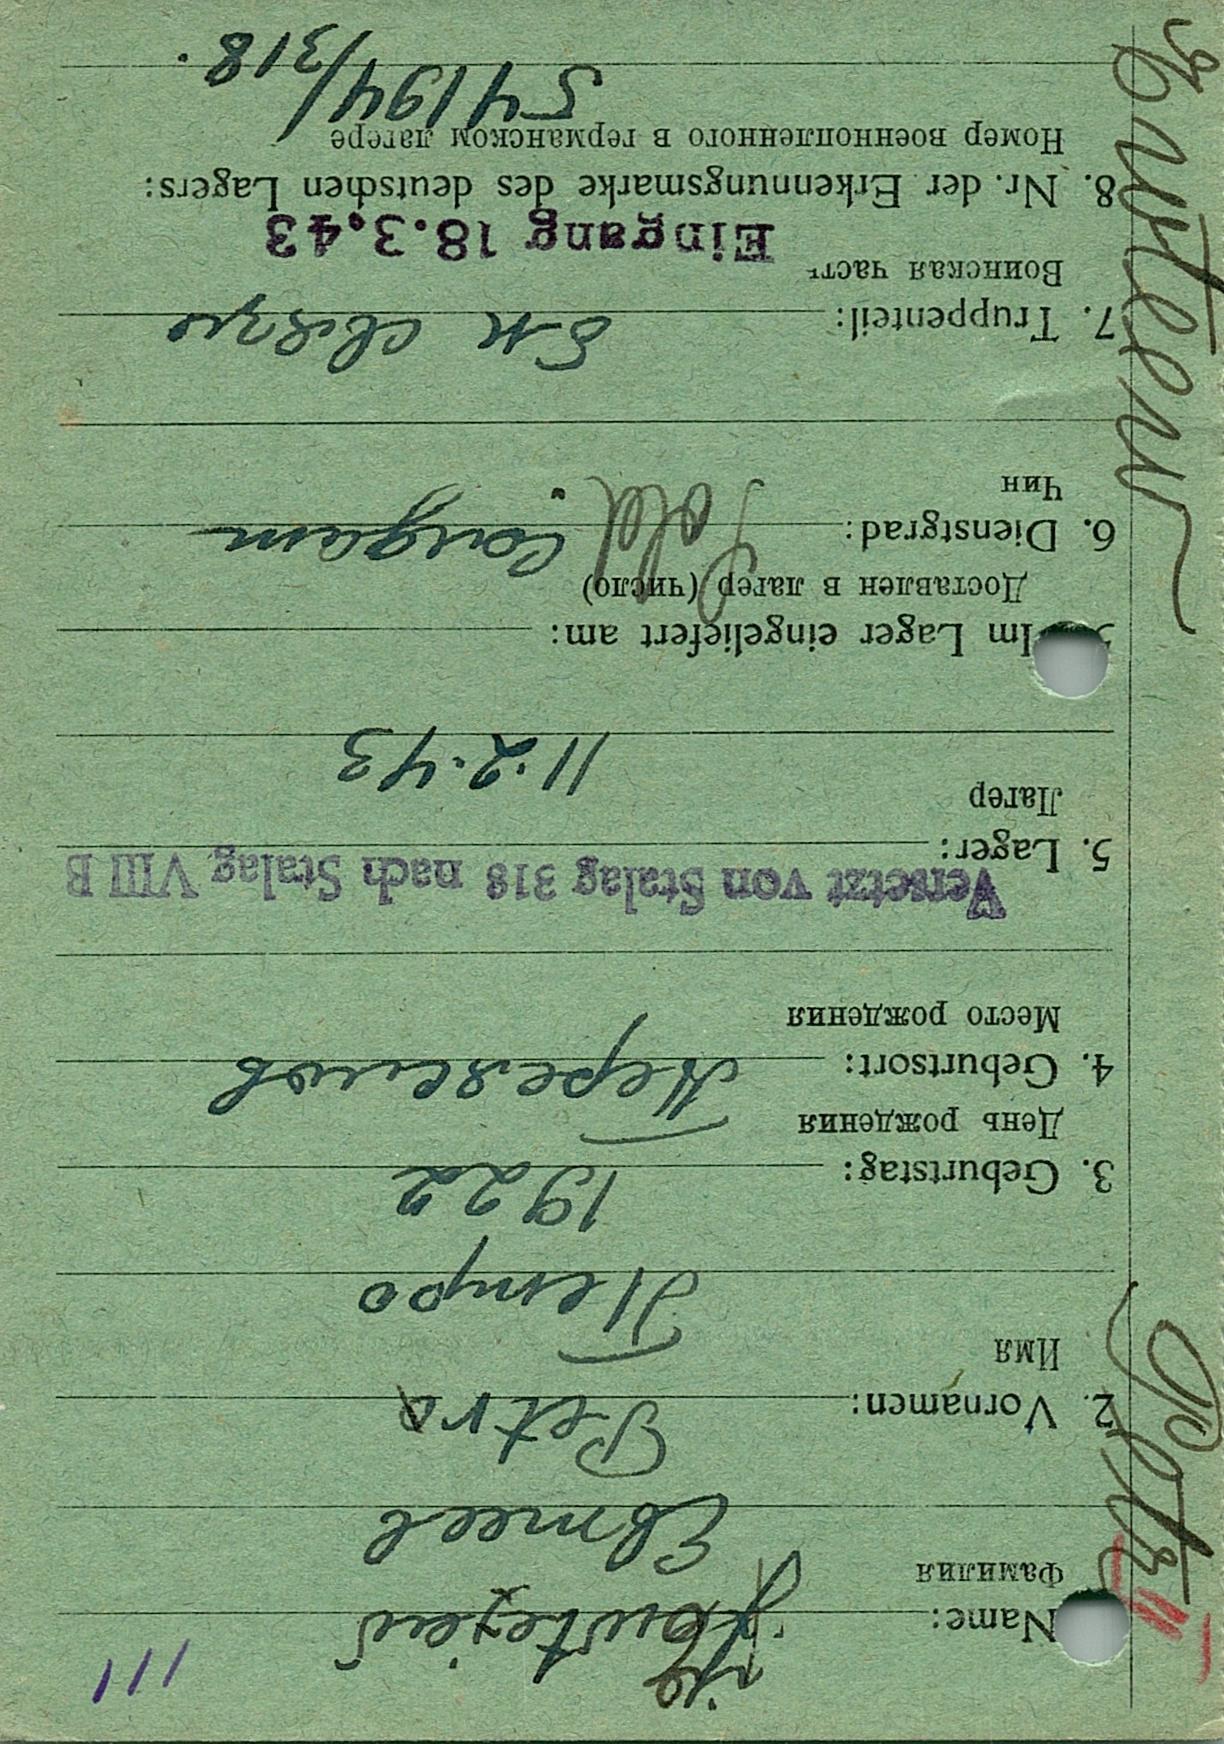 111
Name: Jewtejew
Фамилия Евтеев
2. Vornamen: Petro
Имя Петро
3. Geburtstag: 1922
День рождения
4. Geburtsort:
Место рождения
Versetzt von Stalag 318 nach Stalag VIII B
5. Lager:
Лагер
11.2.43
Im Lager eingeliefert am:
Доставлен в лагер (число)
6. Dienstgrad: Sold. Солдат
Чин
7. Truppenteil: связи
Воинская часть
Eingang 18.3.43
8. Nr. der Erkennungsmarke des deutschen Lagers:
Номер военнопленного в германском лагере
54194/318.